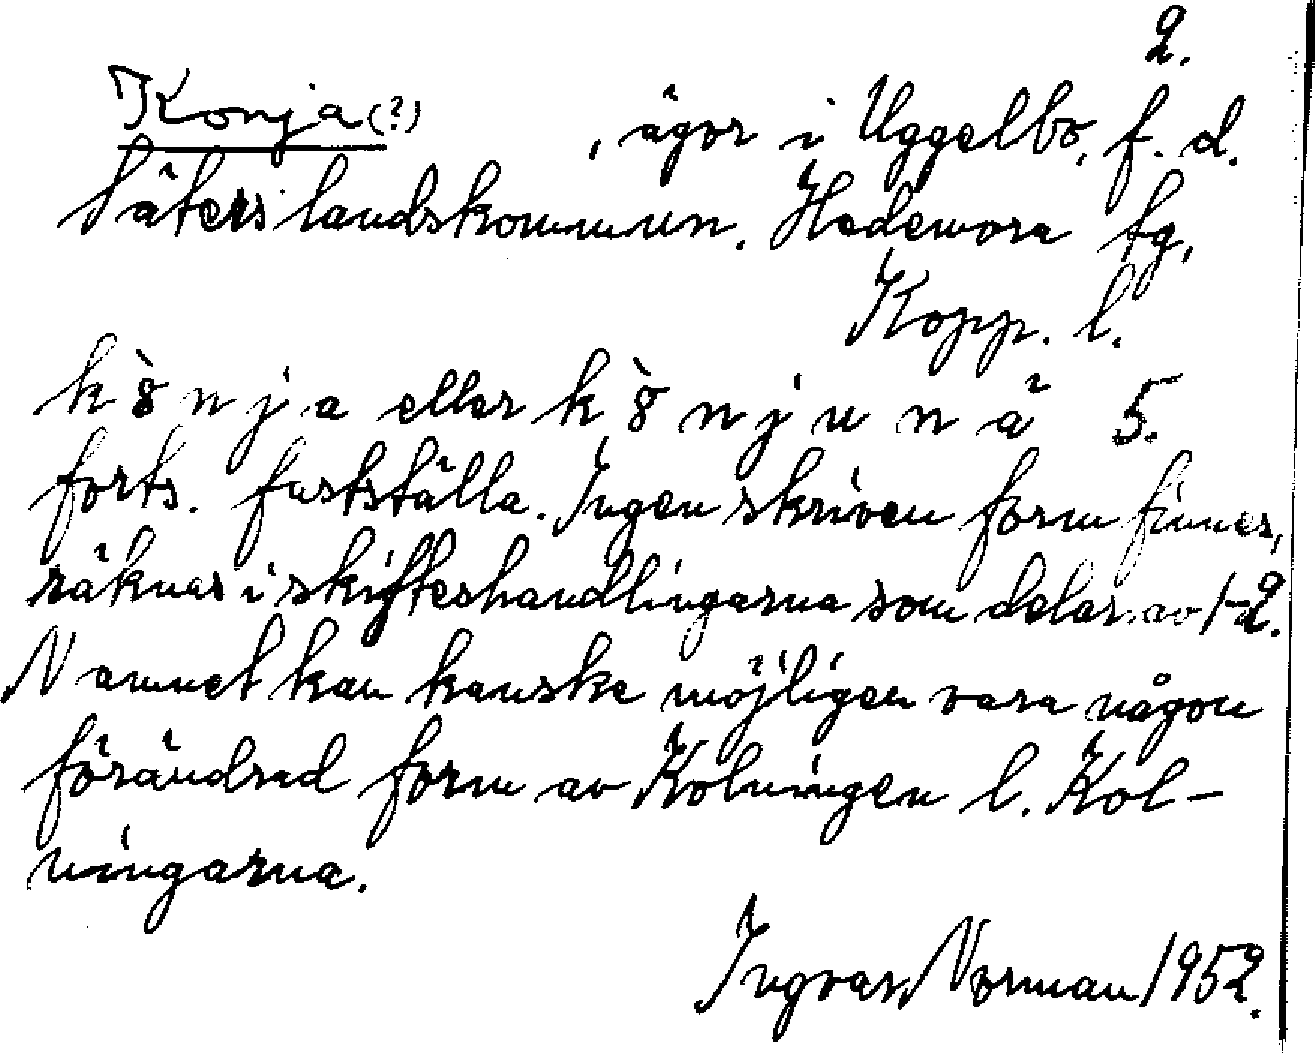 2.
Konja(?) , ägor i Uggelbo, f. d.
Säters landskommun. Hedemora tg,
Kopp. l.
k ò̈ n j a eller k ò̈ n j u n a 5.
forts. fastställa. Ingen skriven form finnes,
räknas i skifteshandlingarna som delar av 1-2.
Namnet kan kanske möjligen vara någon
förändrad form av Kolningen l. Kol-
ningarna.
Ingvar Norman 1952.